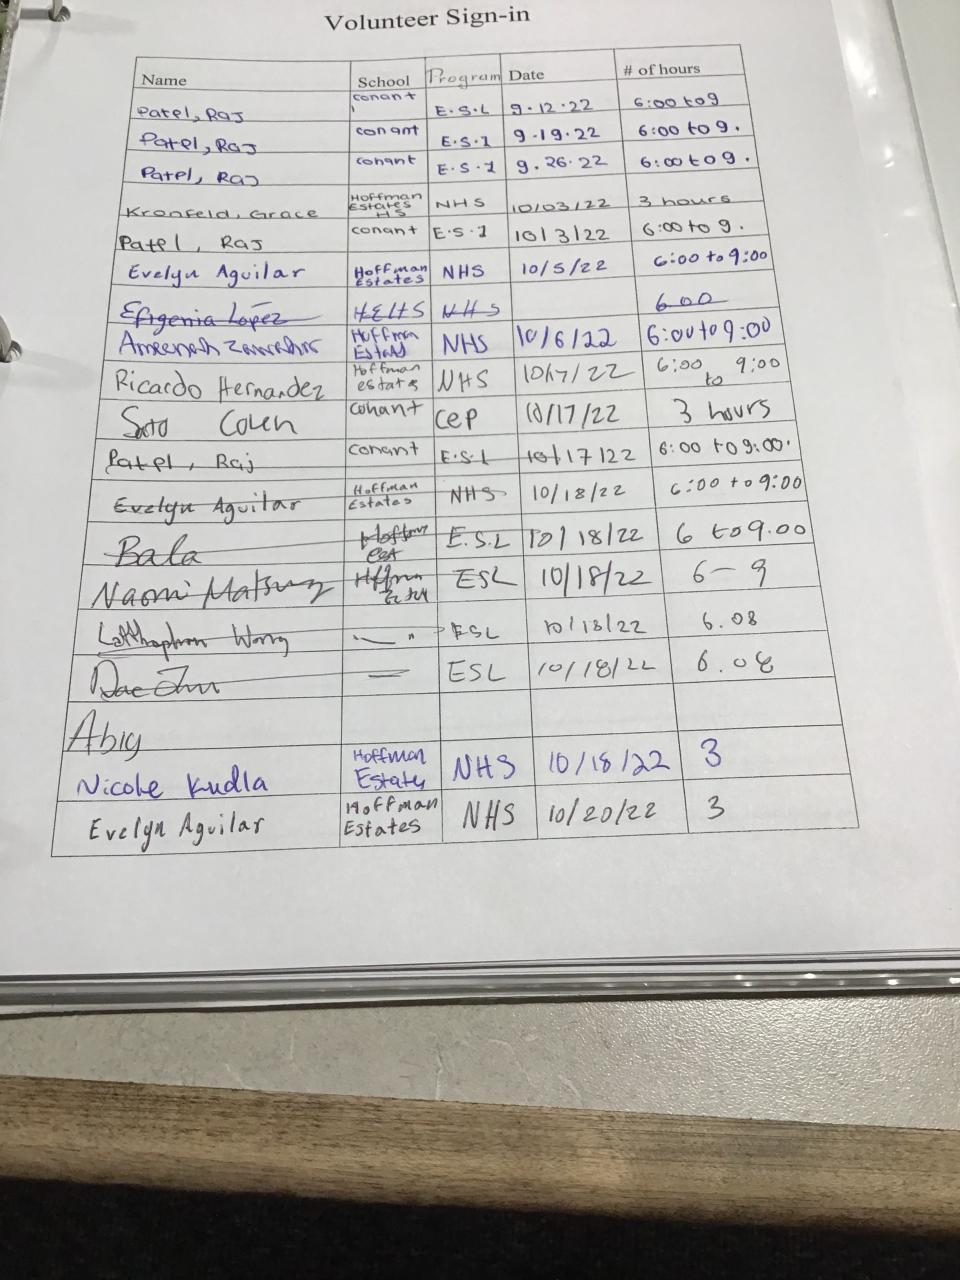 Volunteer Sign-in
Name School Program Date # of hours
Patel, Raj conant E.S.L 9.12.22 6:00 to 9
Patel, Raj conant E.S.1 9.19.22 6:00 to 9.
Patel, Raj conant E.S.1 9.26.22 6:00 to 9.
Kronfeld, Grace Hoffman Estates HS NHS 10/03/22 3 hours
Patel, Raj conant E.S.1 10/3/22 6:00 to 9.
Evelyn Aguilar Hoffman Estates NHS 10/5/22 6:00 to 9:00
Efigenia López HEHS NHS 600
Hoffman NHS 10/6/22 6:00 to 9:00
Ricardo Hernandez Hoffman estates NHS 6:00 to 9:00
conant CEP 10/17/22 3 hours
Patel, Raj conant E.S.L 10/17/22 6:00 to 9:00.
Evelyn Aguilar Hoffman Estates NHS 10/18/22 6:00 to 9:00
Bala E.S.L 10/18/22 6 to 9.00
Naomi ESL 10/18/22 6-9
Wong — " ESL 10/18/22 6.08
ESL 10/18/22 6.08
Abig
Nicole Kudla Hoffman Estates NHS 10/18/22 3
Evelyn Aguilar Hoffman Estates NHS 10/20/22 3